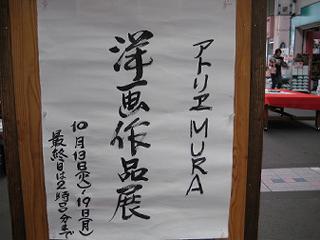 アトリエ MURA
洋画作品展
10月13日(水)~19日(月)
最終日は2時30分まで